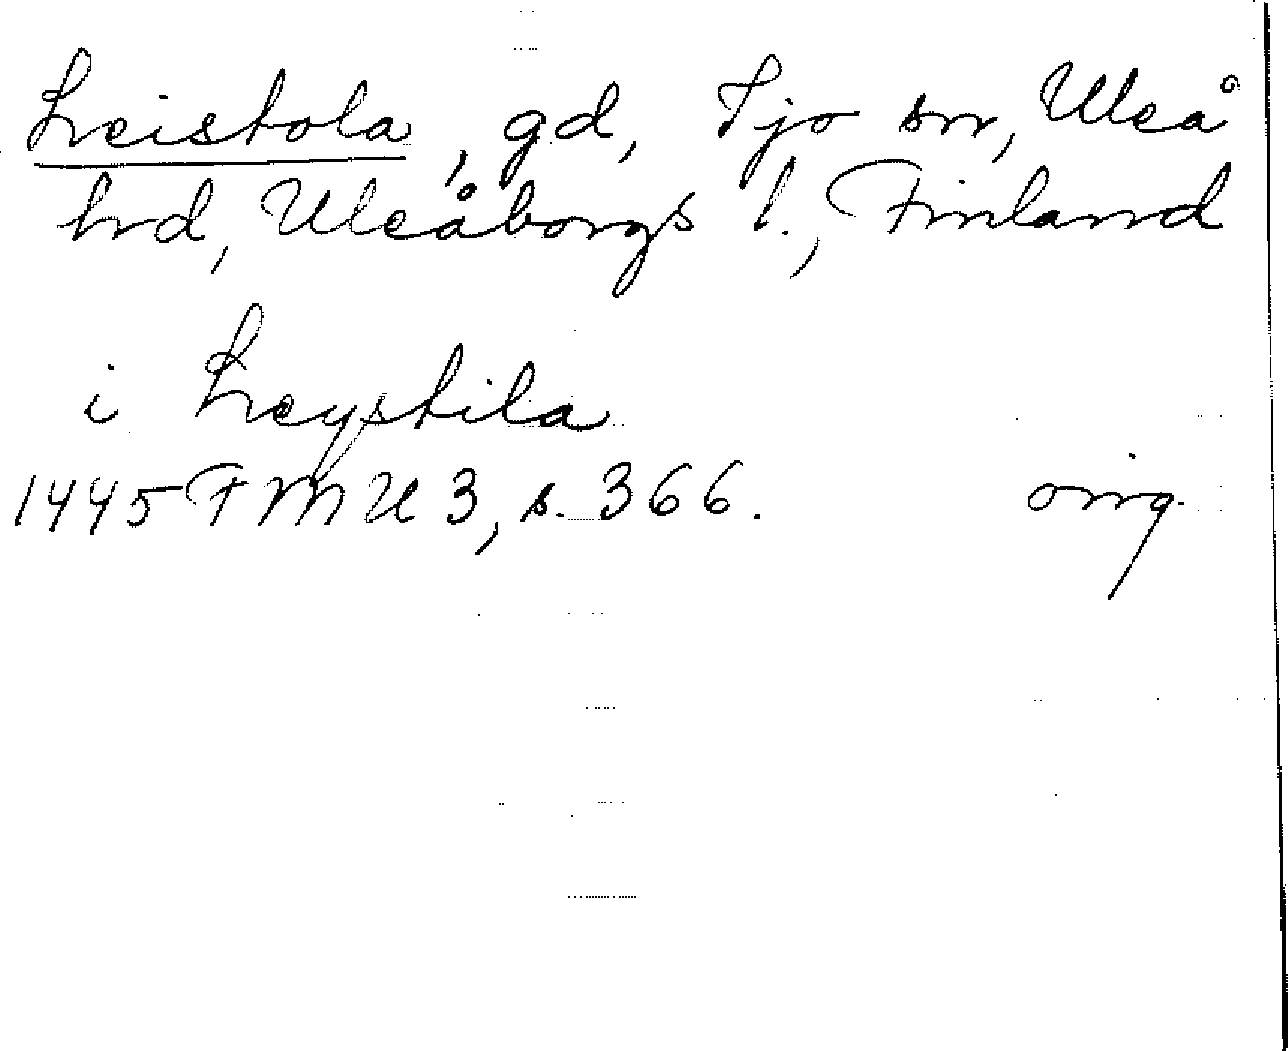 Leistola, gd, Ijo sn, Uleå
hrd, Uleåborgs l., Finland
i Leystila
1445 FMU 3, s. 366. orig.